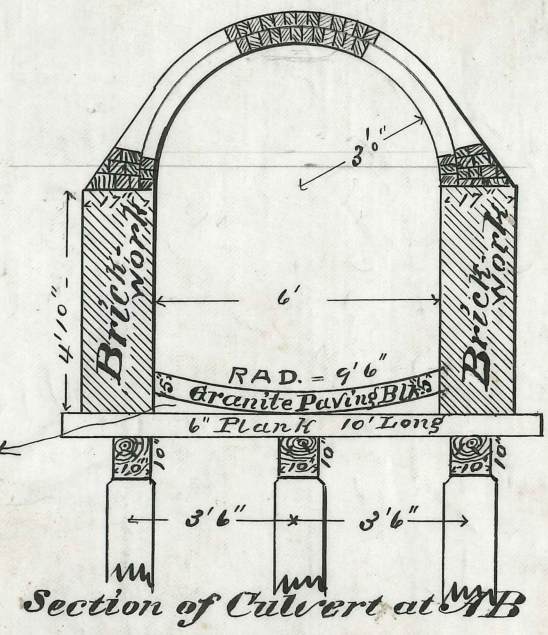 3'0"
17"
17"
4'10"
Brick-work
Brick-work
6'
RAD. = 9'6"
5"
Granite Paving Blk.
5"
6" Plank 10' Long
10"
10"
10"
10"
10"
10"
3'6"
3'6"
Section of Culvert at AB